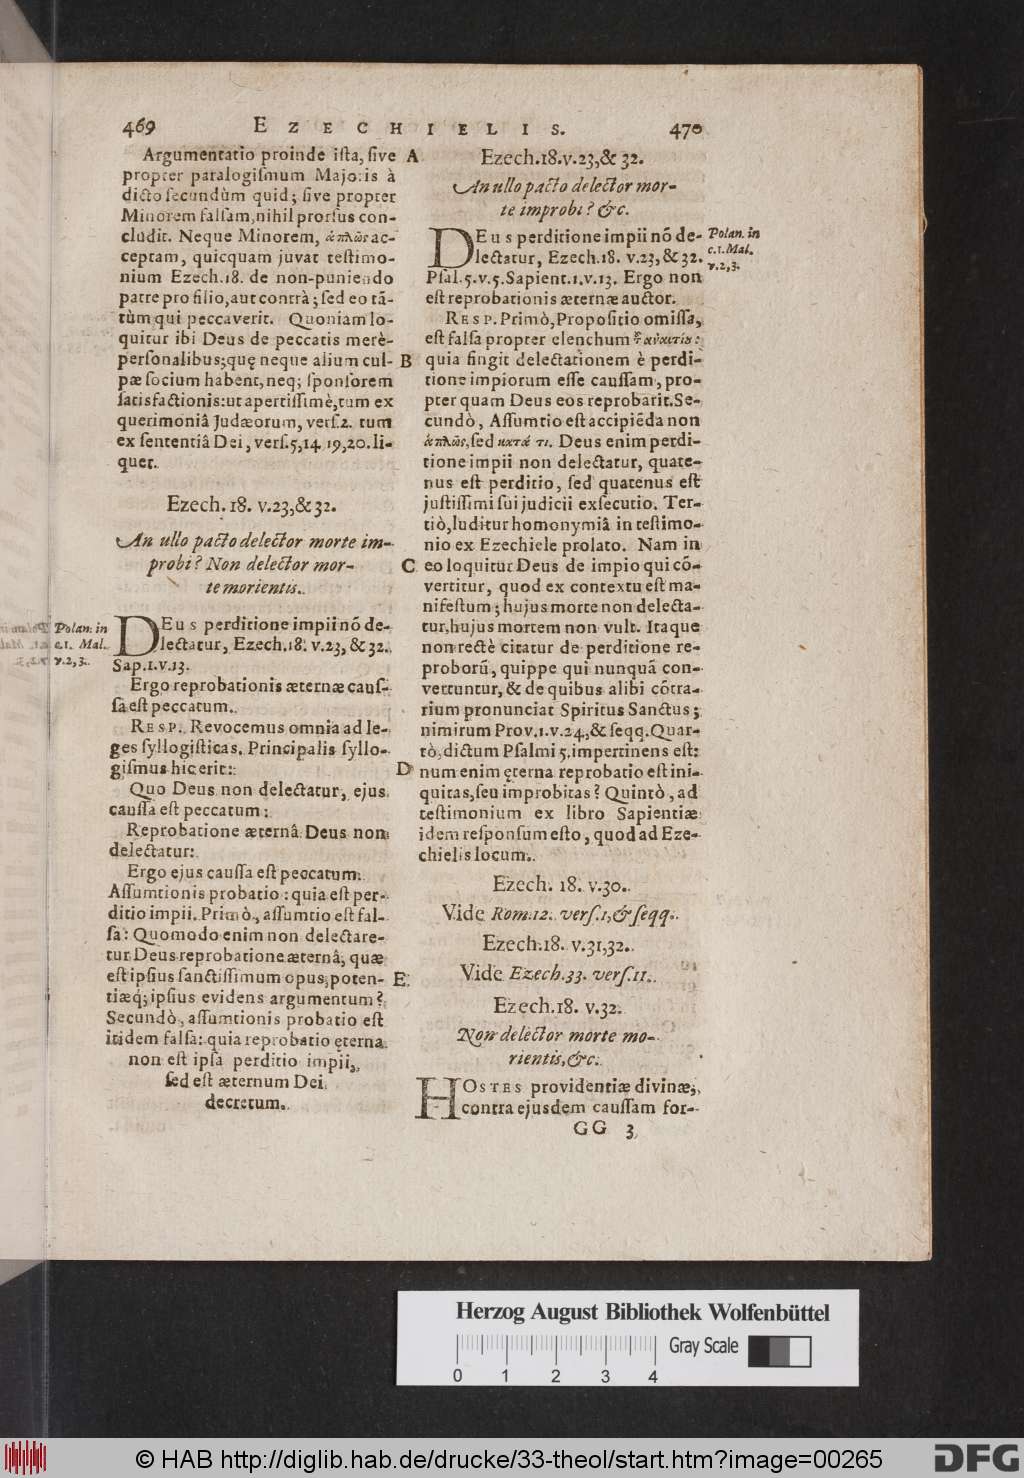 469 EZECHIELIS. 470
Argumentatio proinde iſta, ſive
propter paralogiſmum Majoris à
dicto ſecundùm quid; ſive propter
Minorem falſam, nihil prorſus con-
cludit. Neque Minorem, ἁπλῶς ac-
ceptam, quicquam juvat teſtimo-
nium Ezech.18. de non-puniendo
patre pro filio, aut contrà; ſed eo tā-
tùm qui peccaverit. Quoniam lo-
quitur ibi Deus de peccatis merè-
perſonalibus; quę neque alium cul-
pæ ſocium habent, neq; ſponſorem
ſatisfactionis: ut apertiſſimè, tum ex
querimoniâ Judæorum, verſ.2. tum
ex ſententiâ Dei, verſ.5,14,19,20. li-
quet.
Ezech. 18. v.23,& 32.
An ullo pacto delector morte im-
probi? Non delector mor-
te morientis.
Polan. in
c.1. Mal.
v.2,3.
DEus perditione impii nō de-
lectatur, Ezech.18. v.23, & 32.
Sap.1.v.13.
Ergo reprobationis æternæ cauſ-
ſa eſt peccatum.
RESP. Revocemus omnia ad le-
ges ſyllogiſticas. Principalis ſyllo-
giſmus hic erit:
Quo Deus non delectatur, ejus
cauſſa eſt peccatum:
Reprobatione æternâ Deus non
delectatur:
Ergo ejus cauſſa eſt peccatum.
Aſſumtionis probatio: quia eſt per-
ditio impii. Primò, aſſumtio eſt fal-
ſa: Quomodo enim non delectare-
tur Deus reprobatione æternâ, quæ
eſt ipſius ſanctiſſimum opus, poten-
tiæq; ipſius evidens argumentum?
Secundò, aſſumtionis probatio eſt
itidem falſa: quia reprobatio ęterna
non eſt ipſa perditio impii,
ſed eſt æternum Dei
decretum.
A
B
C
D
E
Ezech.18.v.23,& 32.
An ullo pacto delector mor-
te improbi? &c.
DEus perditione impii nō de-
lectatur, Ezech.18. v.23,& 32.
Pſal.5.v.5. Sapient.1.v.13. Ergo non
eſt reprobationis æternæ auctor.
Polan. in
c.1. Mal.
v.2,3.
RESP. Primò, Propoſitio omiſſa,
eſt falſa propter elenchum ἀναιτίου:
quia fingit delectationem è perdi-
tione impiorum eſſe cauſſam, pro-
pter quam Deus eos reprobarit. Se-
cundò, Aſſumtio eſt accipiēda non
ἁπλῶς, ſed κατά τι. Deus enim perdi-
tione impii non delectatur, quate-
nus eſt perditio, ſed quatenus eſt
juſtiſſimi ſui judicii exſecutio. Ter-
tiò, luditur homonymiâ in teſtimo-
nio ex Ezechiele prolato. Nam in
eo loquitur Deus de impio qui cō-
vertitur, quod ex contextu eſt ma-
nifeſtum; hujus morte non delecta-
tur, hujus mortem non vult. Itaque
non rectè citatur de perditione re-
proborū, quippe qui nunquā con-
vertuntur, & de quibus alibi cōtra-
rium pronunciat Spiritus Sanctus;
nimirum Prov.1.v.24,& ſeqq. Quar-
tò, dictum Pſalmi 5. impertinens eſt:
num enim ęterna reprobatio eſt ini-
quitas, ſeu improbitas? Quintò, ad
teſtimonium ex libro Sapientiæ
idem reſponſum eſto, quod ad Eze-
chielis locum.
Ezech. 18. v.30.
Vide Rom.12. verſ.1,& ſeqq.
Ezech.18. v.31,32.
Vide Ezech.33. verſ.11.
Ezech.18. v.32.
Non delector morte mo-
rientis, &c.
HOSTES providentiæ divinæ,
contra ejusdem cauſſam for-
GG 3
Herzog August Bibliothek Wolfenbüttel
Gray Scale
0 1 2 3 4
© HAB http://diglib.hab.de/drucke/33-theol/start.htm?image=00265
DFG